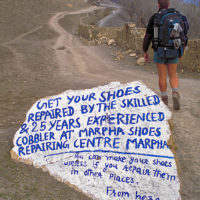 GET YOUR SHOES
REPAIRED BY THE SKILLED
& 25 YEARS EXPERIENCED
COBBLER AT MARPHA SHOES
REPAIRING CENTRE MARPHA
You can make your shoes
useless if you repair them
in other places.
From here